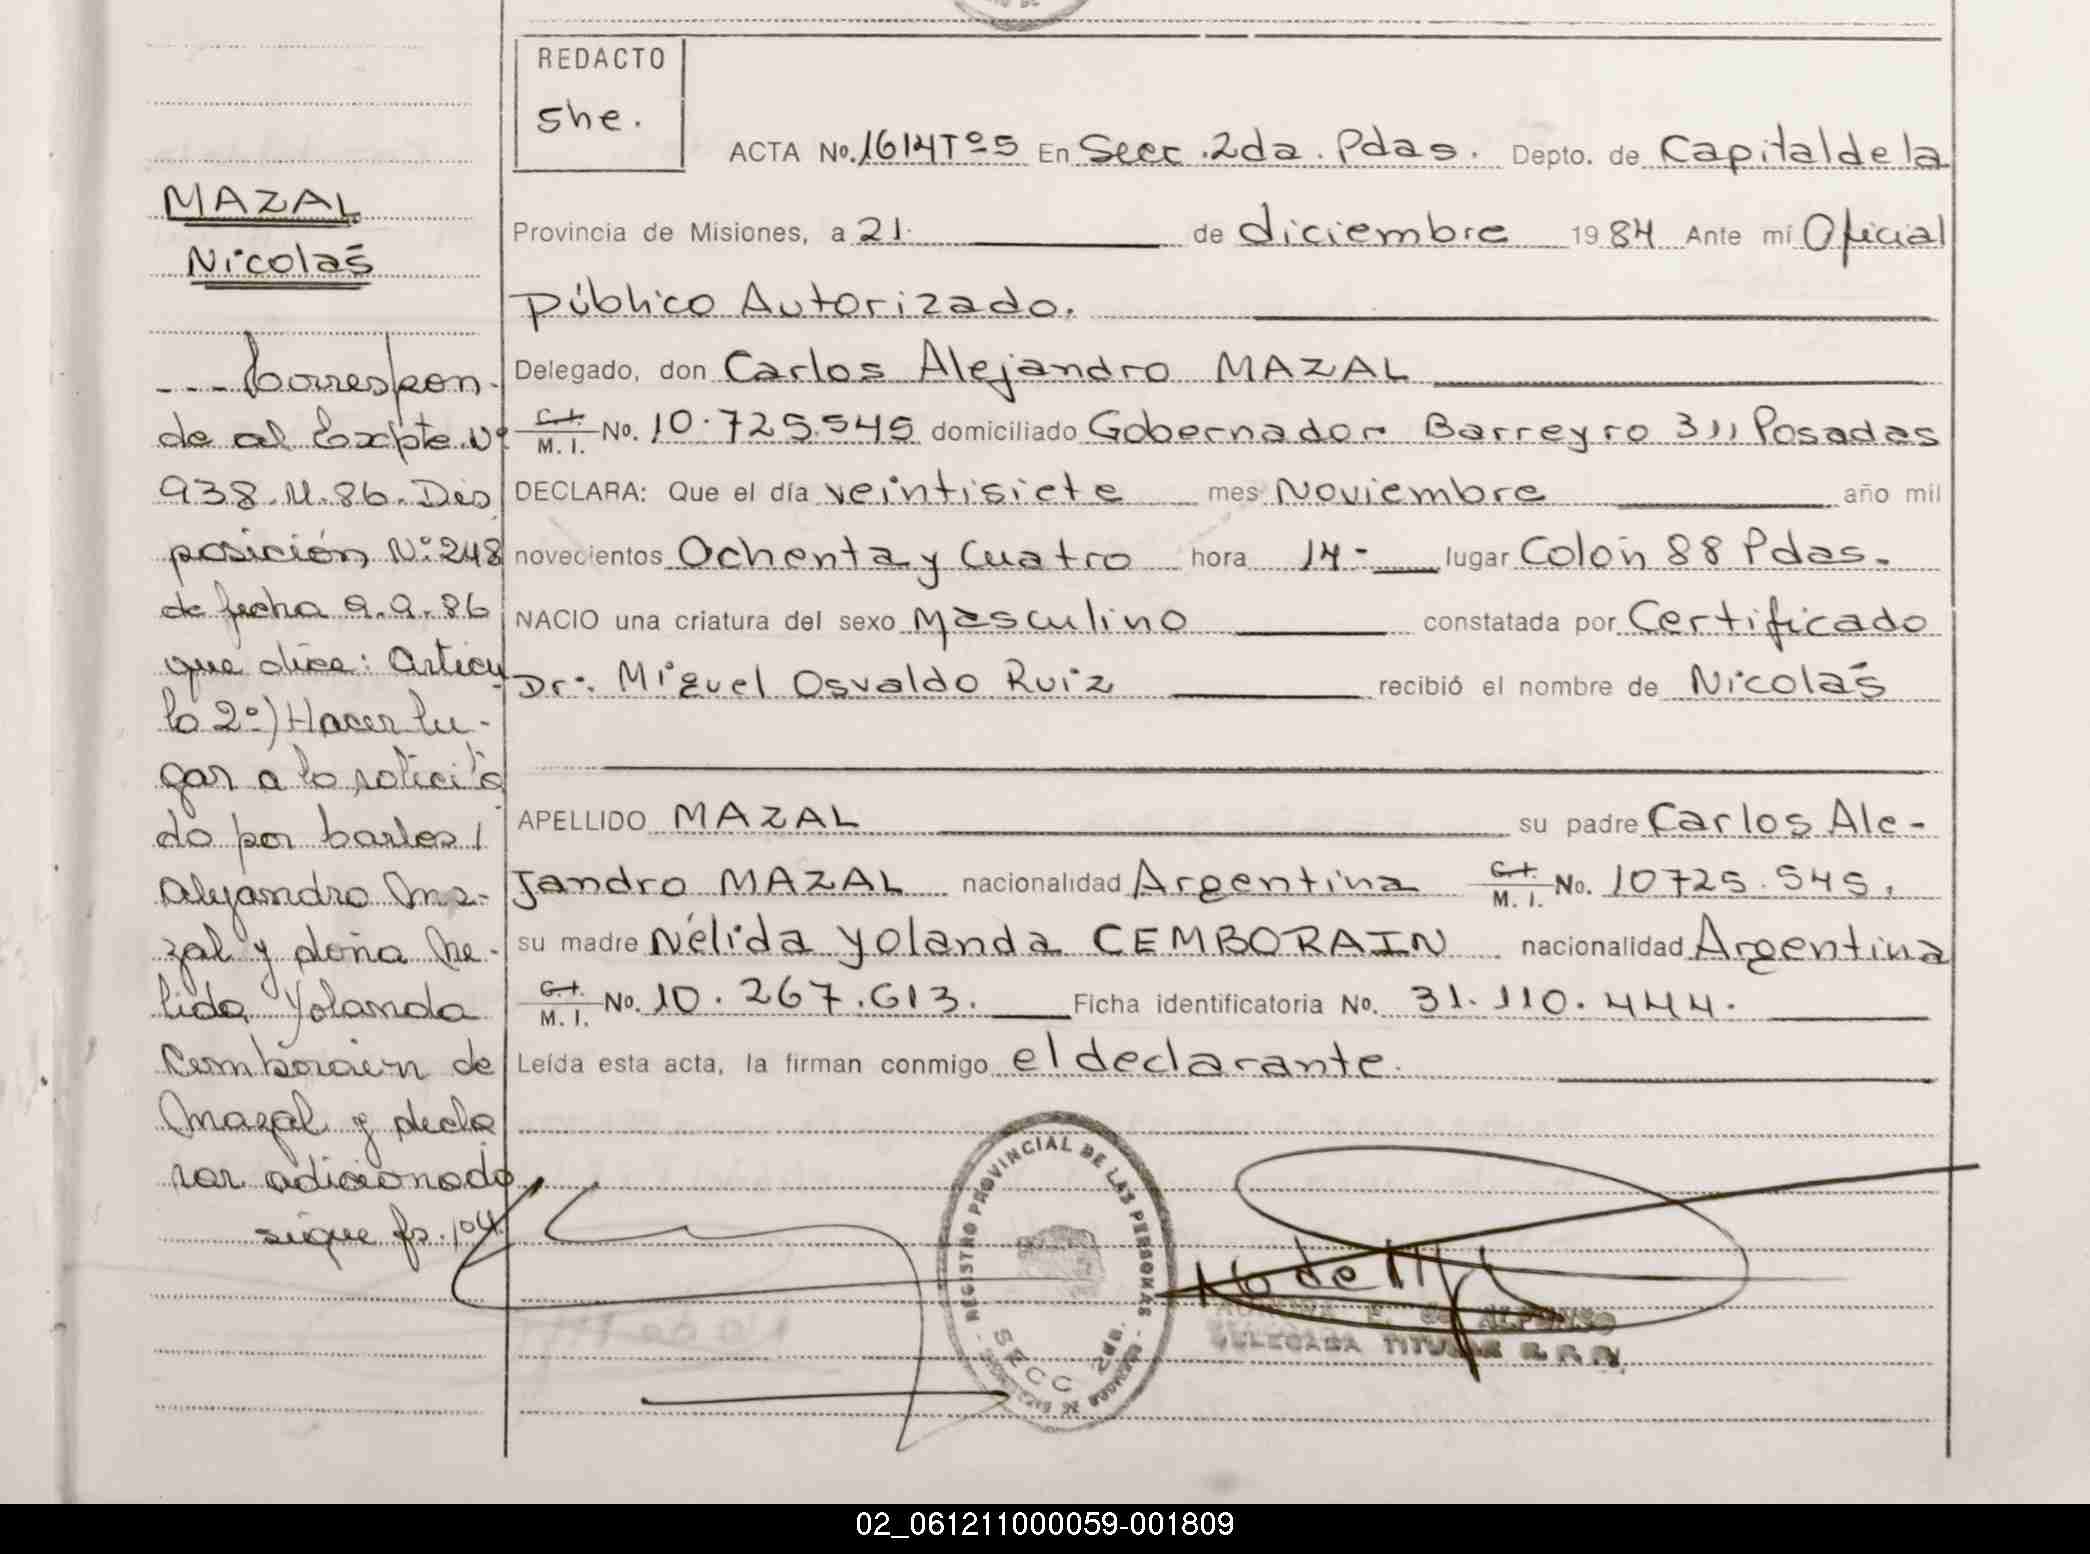 REDACTO
she.
ACTA No. 1614 Tº 5 En Secc. 2da. Pdas. Depto. de Capital de la
Provincia de Misiones, a 21. de diciembre 1984 Ante mí Oficial
Público Autorizado.
Delegado, don Carlos Alejandro MAZAL
C.I. M. I. No. 10.725.545 domiciliado Gobernador Barreyro 311 Posadas
DECLARA: Que el día veintisiete mes Noviembre año mil
novecientos Ochenta y Cuatro hora 14- lugar Colón 88 Pdas.
NACIO una criatura del sexo Masculino constatada por Certificado
Dr: Miguel Osvaldo Ruiz recibió el nombre de Nicolás
APELLIDO MAZAL su padre Carlos Ale-
jandro MAZAL nacionalidad Argentina C.I. M. I. No. 10725.545.
su madre Nélida Yolanda CEMBORAIN nacionalidad Argentina
C.I. M. I. No. 10.267.613. Ficha identificatoria No. 31.110.444.
Leída esta acta, la firman conmigo el declarante.
MAZAL
Nicolás
--- Correspon-
de al Expte. Nº
938.M.86. Dis
posición Nº 248
de fecha 9.9.86
que dice: Artícu
lo 2º) Hacer lu-
gar a lo solicita
do por Carlos /
Alejandro Ma-
zal y doña Ne-
lida Yolanda
Cemborain de
Mazal y decla
rar adicionado
sigue fs. 104
REGISTRO PROVINCIAL DE LAS PERSONAS
SECC 2DA.
E. de ALFONSO
DELEGADA TITULAR R. P. P.
02_061211000059-001809